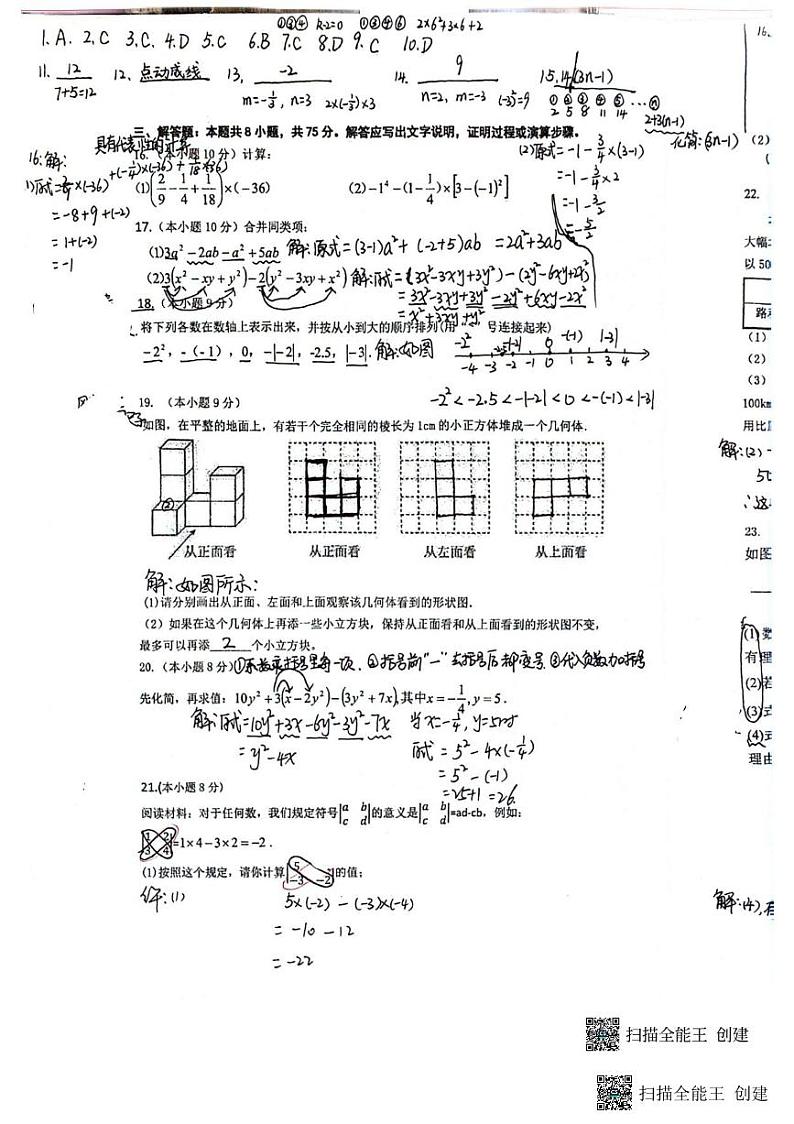 ①③④ k-2=0 ①③④⑥ 2×6²+3×6+2
1.A. 2.C 3.C. 4.D 5.C 6.B 7.C 8.D 9.C 10.D
11. 12 12、点动成线 13, -2 14. 9 15.14 (3n-1)
7+5=12 m=-1/3, n=3 2×(-1/3)×3 n=2, m=-3 (-3)²=9 ① ② ③ ④ ⑤ … ⓝ
2 5 8 11 14 2+3(n-1)
三、解答题：本题共8小题，共75分。解答应写出文字说明，证明过程或演算步骤。 化简:(3n-1)
16.（本小题10分）计算：
(1)(2/9-1/4+1/18)×(-36) (2)-1⁴-(1-1/4)×[3-(-1)²]
16:解:
(1)原式=2/9×(-36)+(-1/4)×(-36)+1/18×(-36)
=-8+9+(-2)
=1+(-2)
=-1
(2)原式=-1-3/4×(3-1)
=-1-3/4×2
=-1-3/2
=-5/2
17.（本小题10分）合并同类项：
(1)3a²-2ab-a²+5ab 解:原式=(3-1)a²+(-2+5)ab =2a²+3ab
(2)3(x²-xy+y²)-2(y²-3xy+x²) 解:原式=(3x²-3xy+3y²)-(2y²-6xy+2x²)
=3x²-3xy+3y²-2y²+6xy-2x²
=x²+3xy+y²
18.（本小题9分）
将下列各数在数轴上表示出来，并按从小到大的顺序排列(用 号连接起来)
-2²，-(-1)，0，-|-2|，-2.5，|-3|. 解:如图
-2² -2.5 -|-2| 0 -(-1) |-3|
-4 -3 -2 -1 0 1 2 3 4
-2²<-2.5<-|-2|<0<-(-1)<|-3|
19.（本小题9分）
如图，在平整的地面上，有若干个完全相同的棱长为1cm的小正方体堆成一个几何体.
②
从正面看 从正面看 从左面看 从上面看
解:如图所示:
(1)请分别画出从正面、左面和上面观察该几何体看到的形状图.
（2）如果在这个几何体上再添一些小立方块，保持从正面看和从上面看到的形状图不变，
最多可以再添 2 个小立方块。
20.（本小题8分）
先化简，再求值：10y²+3(x-2y²)-(3y²+7x),其中x=-1/4,y=5.
解:原式=10y²+3x-6y²-3y²-7x 当x=-1/4,y=5时
=y²-4x 原式=5²-4×(-1/4)
=5²-(-1)
=25+1=26.
21.(本小题8分)
阅读材料：对于任何数，我们规定符号|a b|的意义是|a b|=ad-cb，例如：
|c d| |c d|
|1 2|
|3 4|=1×4-3×2=-2.
(1)按照这个规定，请你计算|5 |的值；
|-3 -2|
解:(1) 5×(-2)-(-3)×(-4)
=-10-12
=-22
(2)
22.
大幅
以50
路
(1)
(2)
(3)
100km
用比
解:(2)
23.
如图
(1)数
有理
(2)若
(3)式
(4)式
理由
解:(4),
扫描全能王 创建
扫描全能王 创建